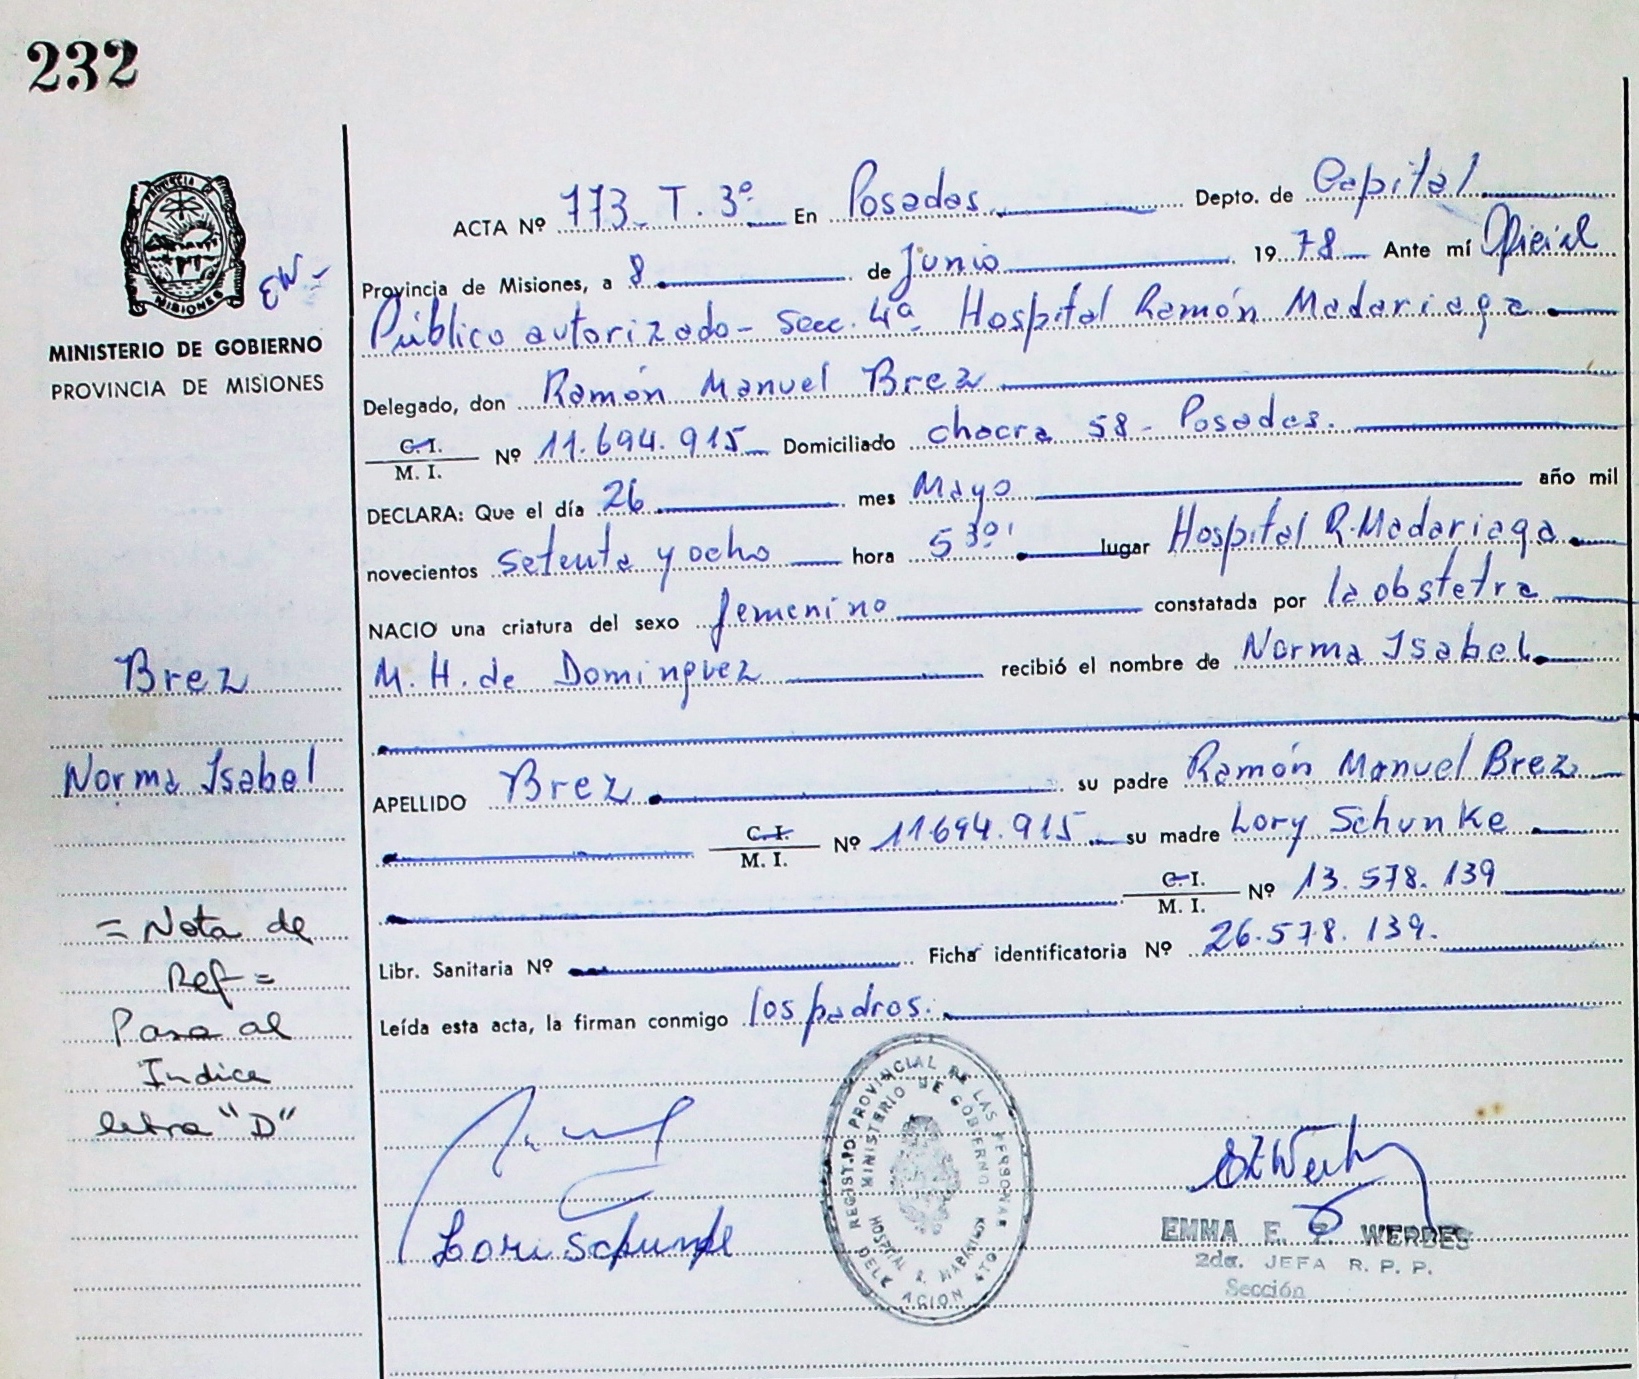 232
PROVINCIA DE
MISIONES
MINISTERIO DE GOBIERNO
PROVINCIA DE MISIONES
ACTA Nº 773 - T. 3º En Posadas Depto. de Capital
Provincia de Misiones, a 8 de Junio 1978 Ante mí Oficial
Público autorizado - Secc. 4ª Hospital Ramón Madariaga
Delegado, don Ramón Manuel Brez
C. I. / M. I. Nº 11.694.915 Domiciliado chacra 58 - Posadas.
DECLARA: Que el día 26 mes Mayo año mil
novecientos setenta y ocho hora 5 30' lugar Hospital R. Madariaga
NACIO una criatura del sexo femenino constatada por la obstetra
M. H. de Dominguez recibió el nombre de Norma Isabel
APELLIDO Brez su padre Ramón Manuel Brez
C. I. / M. I. Nº 11.694.915 su madre Lory Schunke
C. I. / M. I. Nº 13.578.139
Libr. Sanitaria Nº Ficha identificatoria Nº 26.578.139.
Leída esta acta, la firman conmigo los padres.
Brez
Norma Isabel
= Nota de
Ref =
Pasa al
Indice
letra "D"
Lori Schunke
REGISTRO PROVINCIAL DE LAS PERSONAS
MINISTERIO DE GOBIERNO
HOSPITAL R. MADARIAGA
EMMA E. WERBES
2da. JEFA R. P. P.
Sección